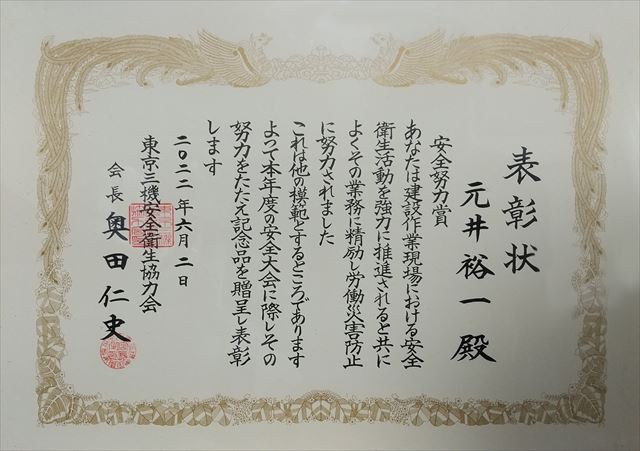 表彰状
元井裕一殿
安全努力賞
あなたは建設作業現場における安全
衛生活動を強力に推進されると共に
よくその業務に精励し労働災害防止
に努力されました
これは他の模範とするところであります
よって本年度の安全大会に際しその
努力をたたえ記念品を贈呈し表彰
します
二〇二二年六月二日
東京三機安全衛生協力会
会長 奥田仁史